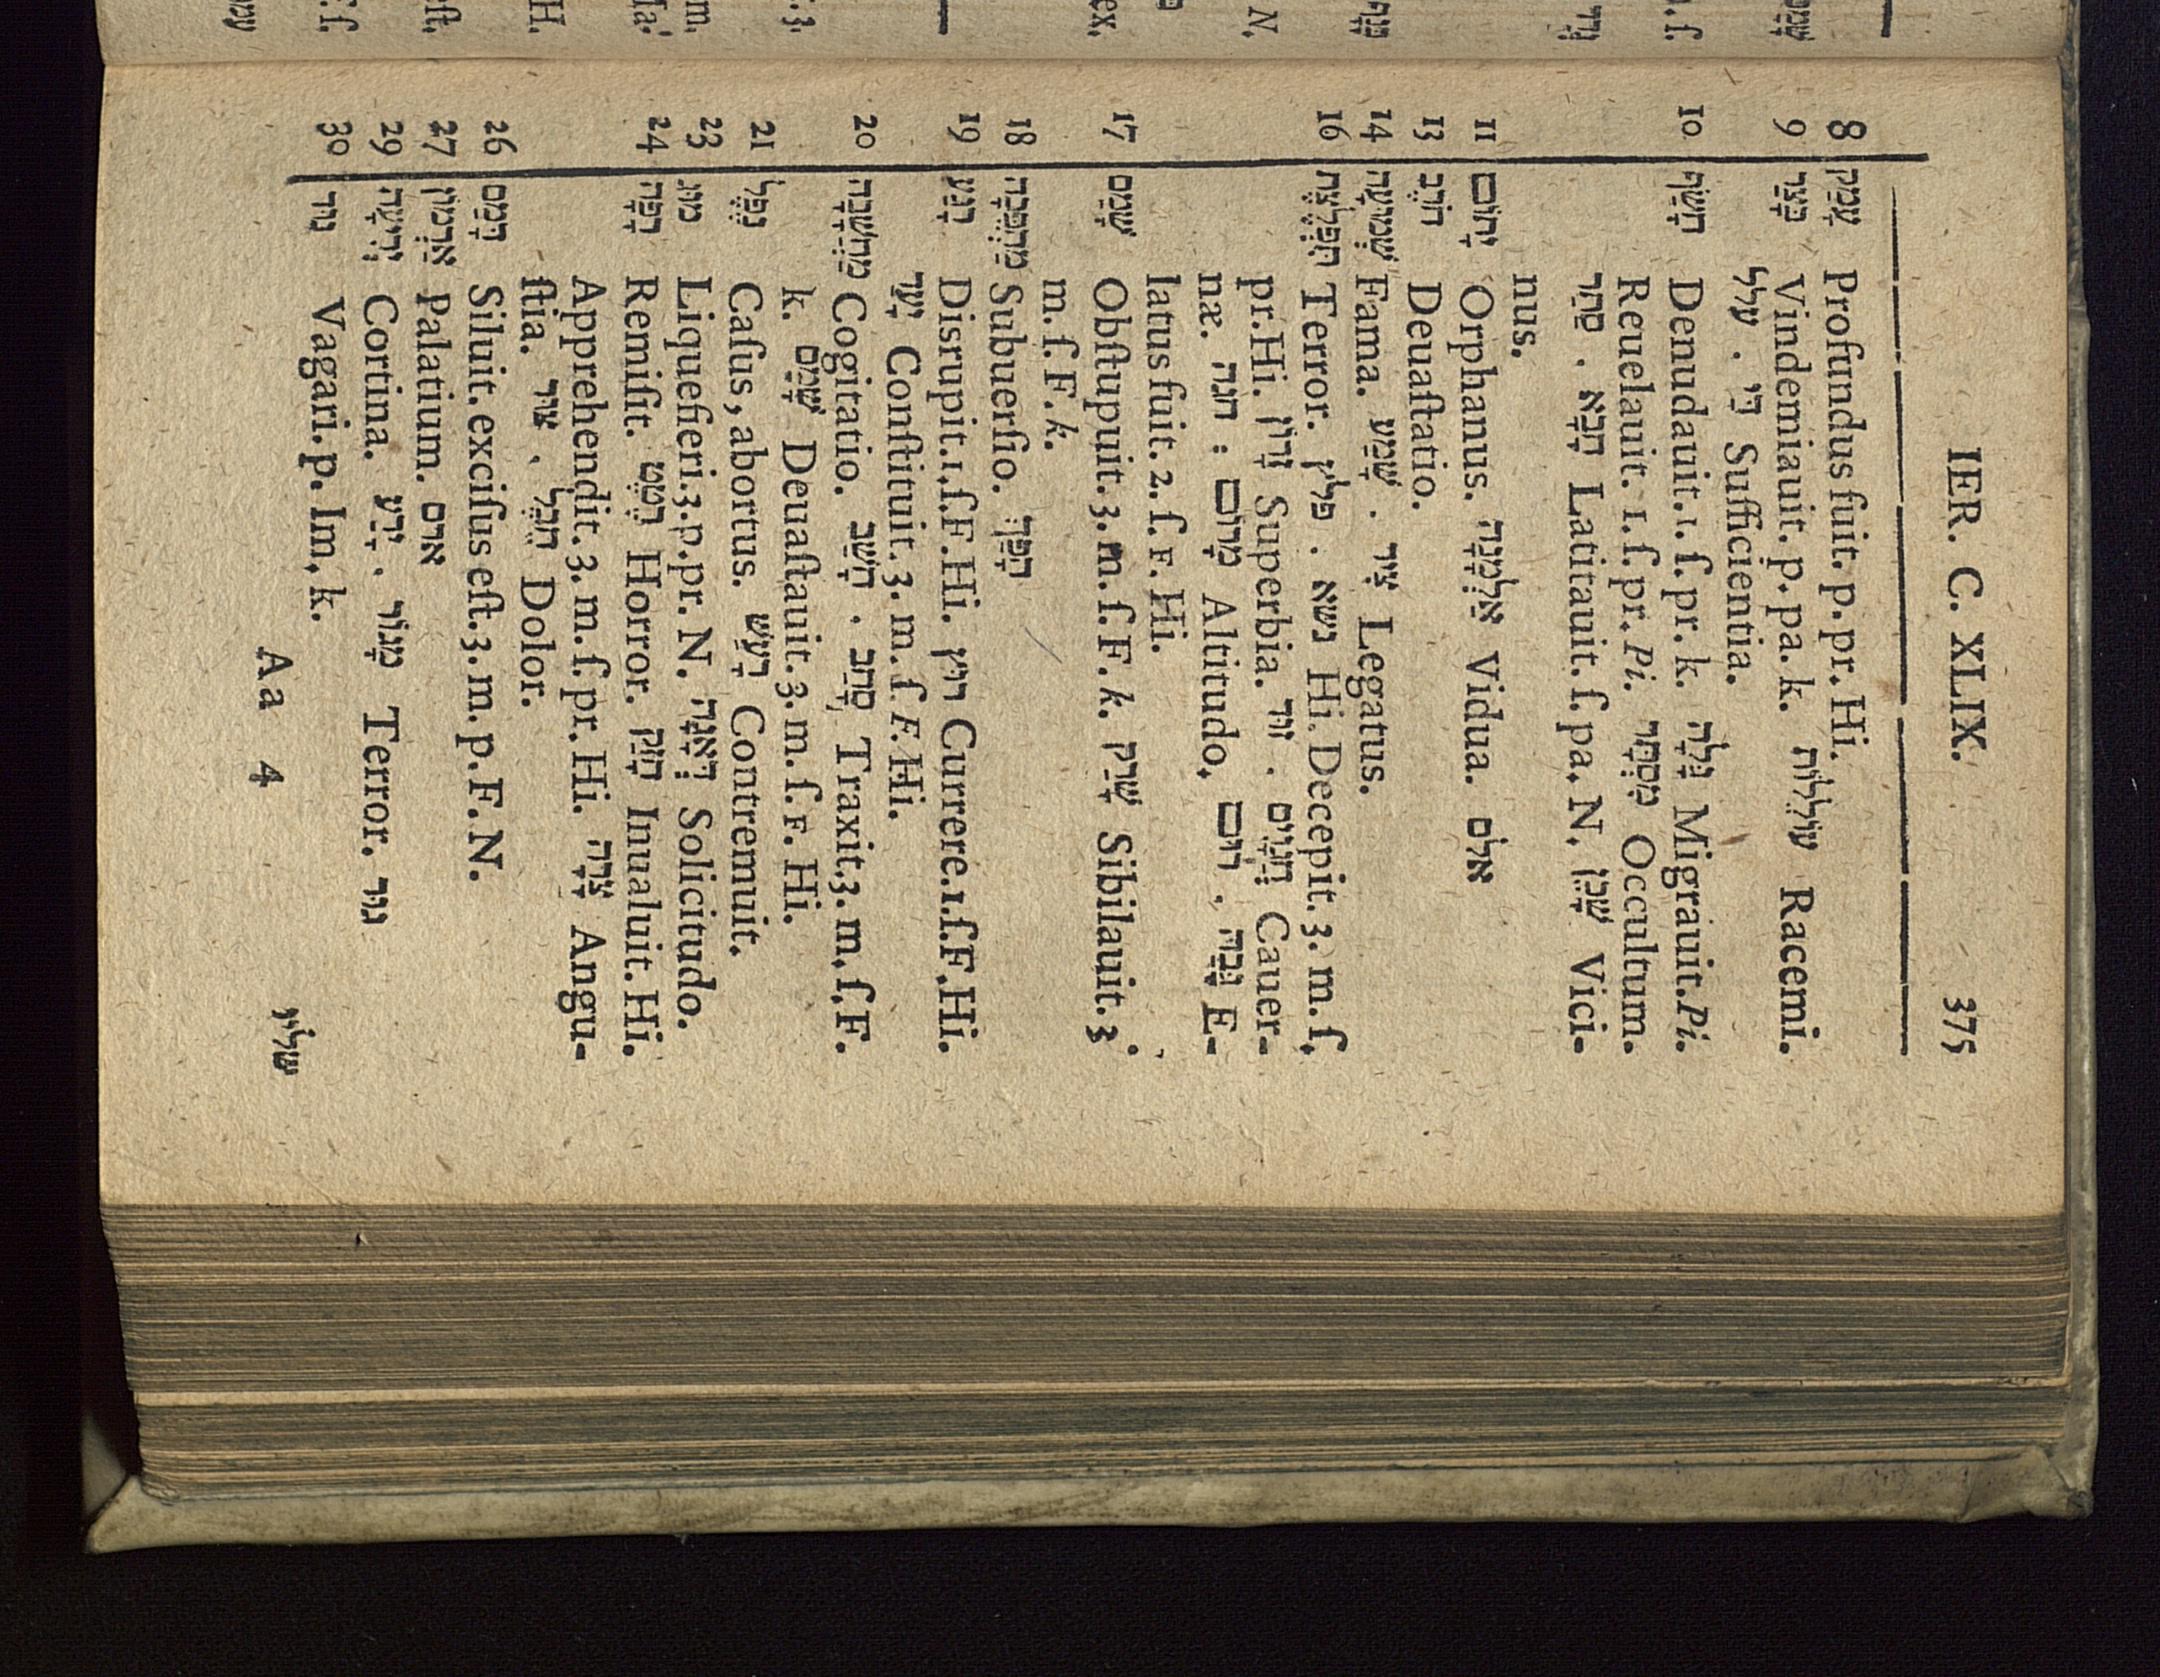 IER. C. XLIX. 375
8 עָמַק Profundus fuit. p. pr. Hi.
9 בָּצַר Vindemiauit. p. pa. k. עוֹלֵלוֹת Racemi.
עלל . דַּי Sufficientia.
10 חָשַׂף Denudauit. 1. ſ. pr. k. גָּלָה Migrauit. Pi.
Reuelauit. 1. ſ. pr. Pi. מִסְתָּר Occultum.
סתר . חָבָא Latitauit. ſ. pa. N. שָׁכֵן Vici-
nus.
11 יָתוֹם Orphanus. אַלְמָנָה Vidua. אלם
13 חֹרֶב Deuaſtatio.
14 שְׁמוּעָה Fama. שָׁמַע . צִיר Legatus.
16 תִּפְלֶצֶת Terror. פלץ . נשא Hi. Decepit. 3. m. ſ.
pr. Hi. זָדוֹן Superbia. זוּד . חֲגָוִים Cauer-
næ. חגה : מָרוֹם Altitudo, רוּם . גָּבַהּ E-
latus fuit. 2. ſ. F. Hi.
17 שָׁמַם Obſtupuit. 3. m. ſ. F. k. שָׁרַק Sibilauit. 3
m. ſ. F. k.
18 מַהְפֵּכָה Subuerſio. הָפַךְ
19 רָגַע Disrupit. 1. ſ. F. Hi. רוּץ Currere. 1. ſ. F. Hi.
יָעַד Conſtituit. 3. m. ſ F. Hi.
20 מַחֲשָׁבָה Cogitatio. חָשַׁב . סָחַב Traxit. 3. m. ſ. F.
k. שָׁמֵם Deuaſtauit. 3. m. ſ. F. Hi.
21 נֵפֶל Caſus, abortus. רָעַשׁ Contremuit.
23 מוּג Liquefieri. 3. p. pr. N. דְּאָגָה Solicitudo.
24 רָפָה Remiſit. רֶטֶט Horror. חָזַק Inualuit. Hi.
Apprehendit. 3. m. ſ. pr. Hi. צָרָה Angu-
ſtia. צוּר . חֵבֶל Dolor.
26 דָּמַם Siluit. exciſus eſt. 3. m. p. F. N.
27 אַרְמוֹן Palatium. ארם
29 יְרִיעָה Cortina. יָרַע . מָגוֹר Terror. גוּר
30 נוּד Vagari. p. Im. k.
Aa 4 שׁלֵיו